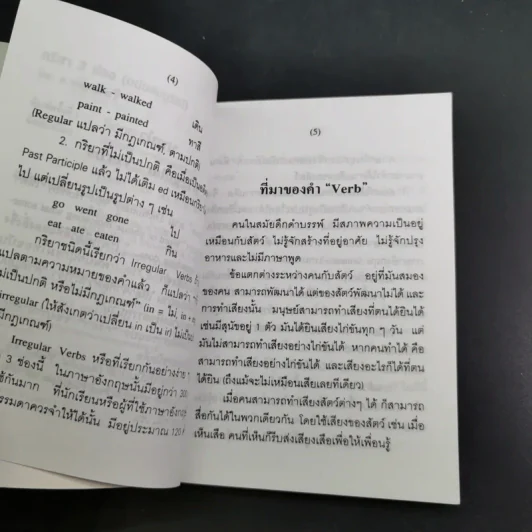 (4)
walk - walked เดิน
paint - painted ทาสี
(Regular แปลว่า มีกฎเกณฑ์, ตามปกติ)
2. กริยาที่ไม่เป็นปกติ คือเมื่อเป็น
Past Participle แล้ว ไม่ได้เติม ed เหมือนกริยา
ไป แต่เปลี่ยนรูปเป็นรูปต่าง ๆ เช่น
go went gone ไป
eat ate eaten กิน
กริยาชนิดนี้เรียกว่า Irregular Verbs
แปลตามความหมายของคำแล้ว ก็แปลว่า
ไม่เป็นปกติ หรือไม่มีกฎเกณฑ์" (in = ไม่, in +
irregular (ให้สังเกตว่าเปลี่ยน in เป็น ir) ไม่เป็น
มีกฎเกณฑ์)
Irregular Verbs หรือที่เรียกกันอย่างง่าย ๆ
3 ช่องนี้ ในภาษาอังกฤษนั้นมีอยู่กว่า
ใช้กันมาก ที่นักเรียนหรือผู้ที่ใช้ภาษาอังกฤษ
ธรรมดาควรจำให้ได้นั้น มีอยู่ประมาณ 120
(5)
ที่มาของคำ "Verb"
คนในสมัยดึกดำบรรพ์ มีสภาพความเป็นอยู่
เหมือนกับสัตว์ ไม่รู้จักสร้างที่อยู่อาศัย ไม่รู้จักปรุง
อาหารและไม่มีภาษาพูด
ข้อแตกต่างระหว่างคนกับสัตว์ อยู่ที่มันสมอง
ของคน สามารถพัฒนาได้ แต่ของสัตว์พัฒนาไม่ได้ และ
การทำเสียงนั้น มนุษย์สามารถทำเสียงที่ตนได้ยินได้
เช่นมีสุนัขอยู่ 1 ตัว มันได้ยินเสียงไก่ขันทุก ๆ วัน แต่
มันไม่สามารถทำเสียงอย่างไก่ขันได้ หากคนทำได้ คือ
สามารถทำเสียงอย่างไก่ขันได้ และเสียงอะไรก็ได้ที่ตน
ได้ยิน (ถึงแม้จะไม่เหมือนเสียเลยทีเดียว)
เมื่อคนสามารถทำเสียงสัตว์ต่างๆ ได้ ก็สามารถ
สื่อกันได้ในพวกเดียวกัน โดยใช้เสียงของสัตว์ เช่น เมื่อ
เห็นเสือ คนที่เห็นก็รีบส่งเสียงเสือเพื่อให้เพื่อนรู้